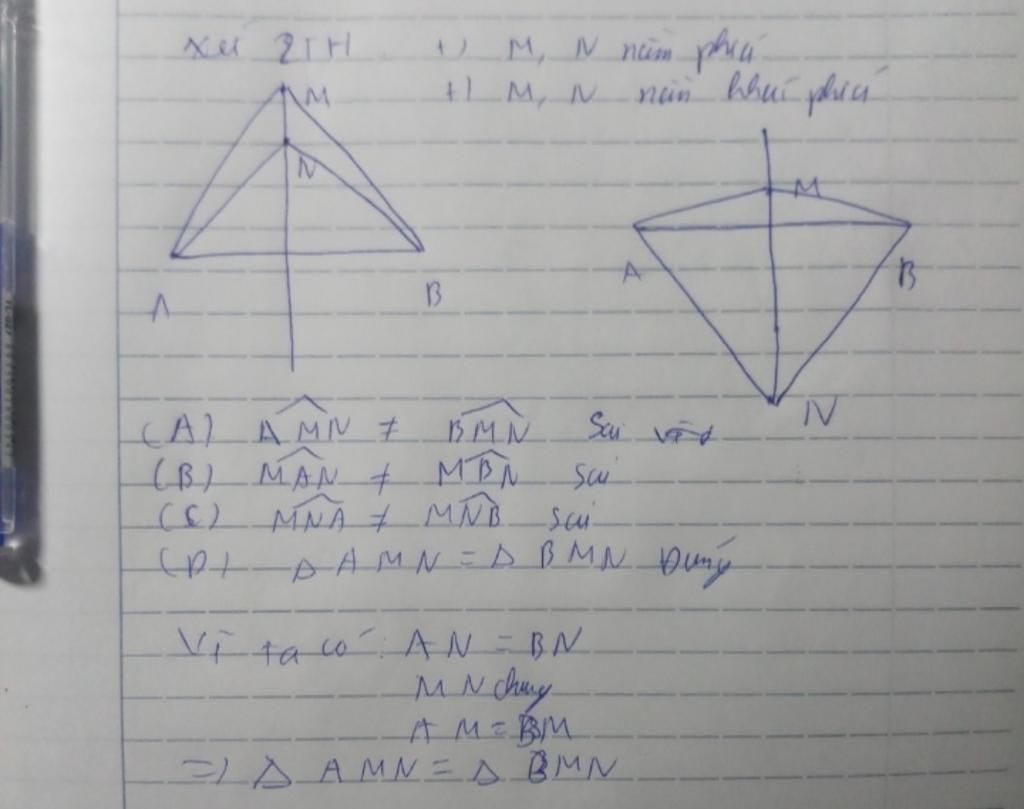 Xét 2TH +) M, N nằm phía
+) M, N nằm khác phía
M
N
A
B
M
A
B
N
(A) AMN ≠ BMN Sai
(B) MAN ≠ MBN sai
(C) MNA ≠ MNB sai
(D) Δ AMN = Δ BMN Đúng
Vì ta có: AN = BN
MN chung
AM = BM
=) Δ AMN = Δ BMN